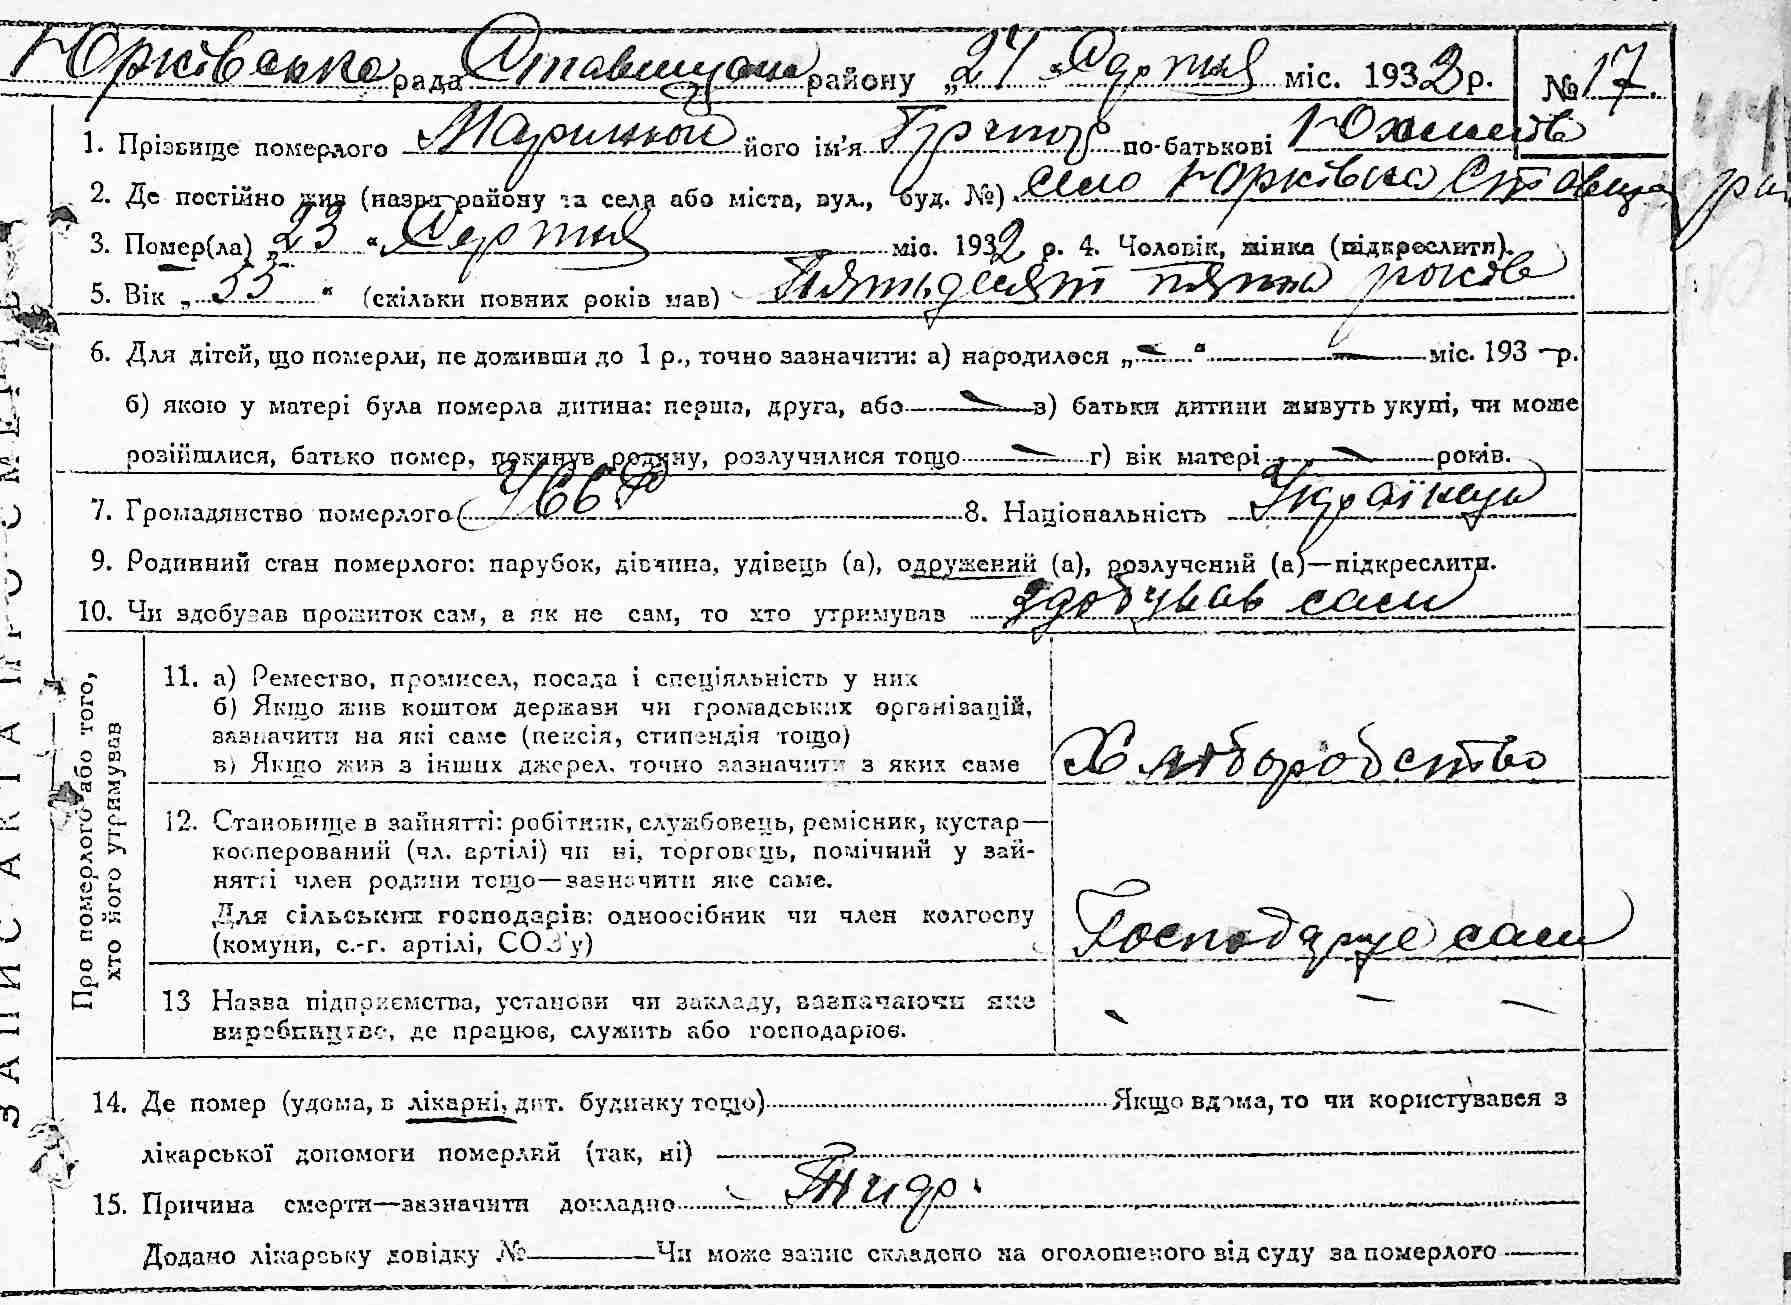 Юрківська рада Ставищан району „24“ Серпня міс. 1932 р. № 17.
1. Прізвище померлого його ім’я Григор по-батькові Юхимів
2. Де постійно жив (назва району та села або міста, вул., буд. №) село Юрківка Ставищ
3. Помер(ла) „23“ Серпня міс. 1932 р. 4. Чоловік, жінка (підкреслити).
5. Вік „55“ (скільки повних років мав) Пятьдесят пять років
6. Для дітей, що померли, не доживши до 1 р., точно зазначити: а) народилося „-“ — міс. 193 – р.
б) якою у матері була померла дитина: перша, друга, або — в) батьки дитини живуть укупі, чи може
розійшлися, батько помер, покинув родину, розлучилися тощо — г) вік матері — років.
7. Громадянство померлого УССР 8. Національність Українец
9. Родинний стан померлого: парубок, дівчина, удівець (а), одружений (а), розлучений (а)—підкреслити.
10. Чи здобував прожиток сам, а як не сам, то хто утримував здобував сам
ЗАПИС АКТА ПРО СМЕРТЬ
Про померлого або того,
хто його утримував
11. а) Ремество, промисел, посада і спеціяльність у них
б) Якщо жив коштом держави чи громадських організацій,
зазначити на які саме (пенсія, стипендія тощо)
в) Якщо жив з інших джерел, точно зазначити з яких саме Хліборобство
12. Становище в зайнятті: робітник, службовець, ремісник, кустар—
кооперований (чл. артілі) чи ні, торговець, помічний у зай-
нятті член родини тощо—зазначити яке саме.
Для сільських господарів: одноосібник чи член колгоспу
(комуни, с.-г. артілі, СОЗ’у) Господарує сам
13 Назва підприємства, установи чи закладу, зазначаючи яке
виробництво, де працює, служить або господарює. - - -
14. Де помер (удома, в лікарні, дит. будинку тощо) Якщо вдома, то чи користувався з
лікарської допомоги померлий (так, ні)
15. Причина смерти—зазначити докладно
Додано лікарську довідку № Чи може запис складено на оголошеного від суду за померлого